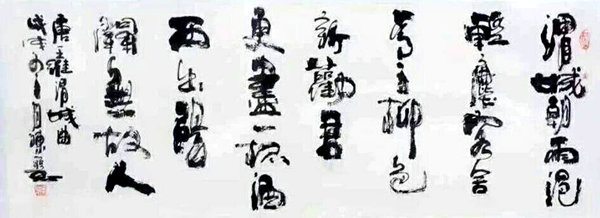 渭城朝雨浥
輕塵客舍
青々柳色
新勸君
更盡一杯酒
西出陽
關無故人
唐王維渭城曲
戊戌